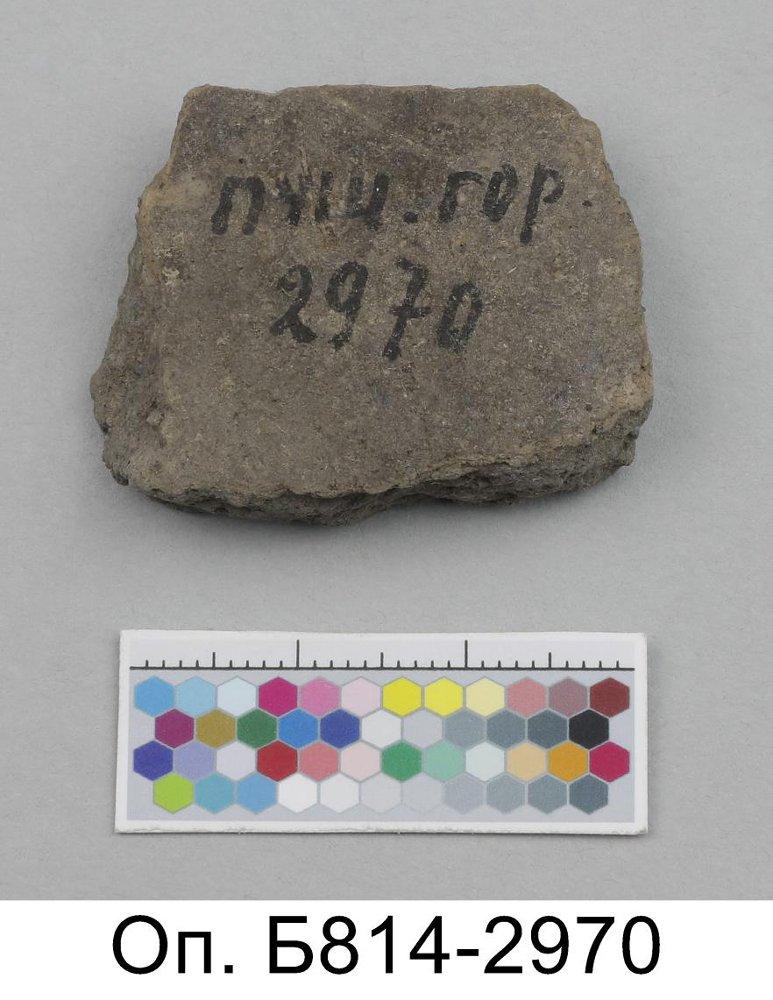 пчш. гор.
2970
Оп. Б814-2970